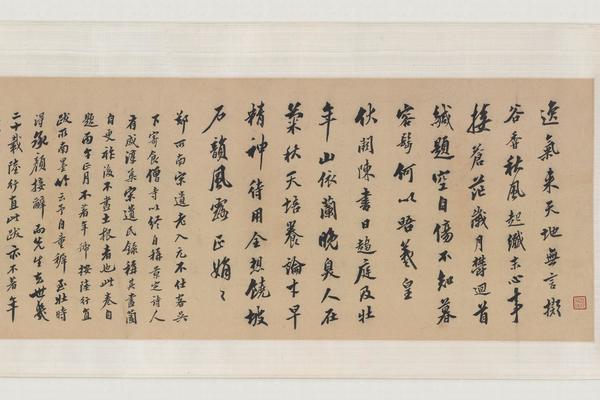 逸氣來天地無言擬
谷香秋風起纖末心事
接蒼茫歲月欝迴首
緘題空自傷不知暮
容髩何以晤羲皇
伏閣陳書日趨庭及壯
年山依蘭晚臭人在
菊秋天培養論才早
精神待用全想饒坡
石韻風露正娟〻
鄭所南宋遺老入元不仕客吳
下寄食僧寺以終自稱景定詩人
有咸淳集宋遺民錄稱其畫蘭
自更祚後不畫土根者也此卷自
題丙午正月不著年號按陸行直
跋所南墨竹云予自童稺至壯時
得承顏接辭而先生去世幾
二十載陸行直此跋亦不著年